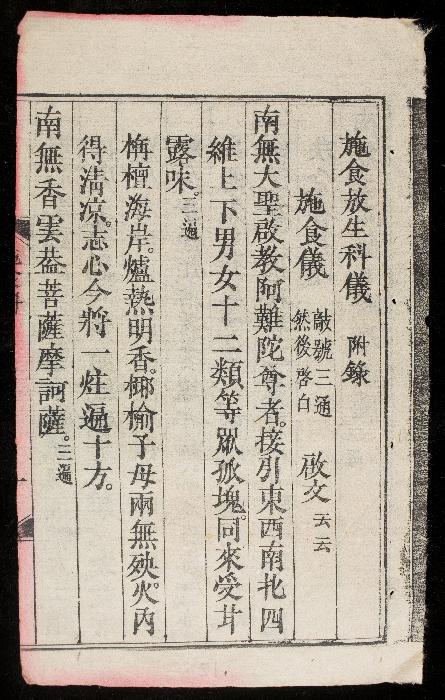 施食放生科儀 附錄
施食儀 敲號三通 然後啓白 啟文 云云
南無大聖啟教阿難陀尊者。接引東西南北四
維上下男女十二類等眾孤塊。同來受甘
露味。三遍
栴檀海岸。爐熱明香。椰榆子母兩無殃。火內
得清凉。志心今將一炷遍十方。
南無香雲葢菩薩摩訶薩。三遍